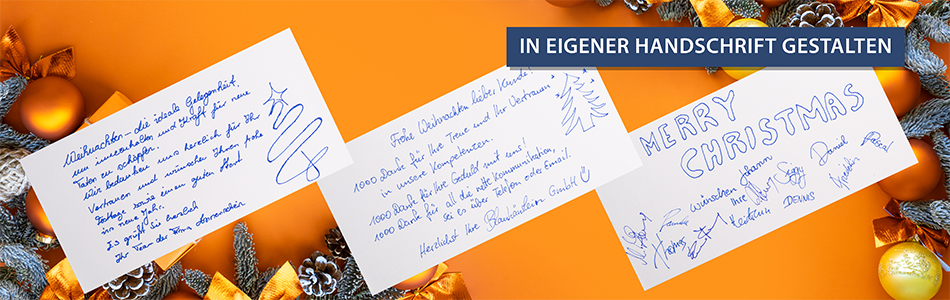 IN EIGENER HANDSCHRIFT GESTALTEN
Weihnachten – die ideale Gelegenheit,
um innezuhalten und Kraft für neue
Taten zu schöpfen.
Wir bedanken uns herzlich für Ihr
Vertrauen und wünschen Ihnen frohe
Festtage sowie einen guten Start
ins neue Jahr.
Es grüßt Sie herzlich
Ihr Team der Firma
Frohe Weihnachten lieber Kunde!
1000 Dank für Ihre Treue und Ihr Vertrauen
in unsere Kompetenzen.
1000 Dank für Ihre Geduld mit uns!
1000 Dank für all die nette Kommunikation,
sei es über Telefon oder Email.
Herzlichst Ihre GmbH
MERRY
CHRISTMAS
wünschen Johann
Ihre Siggi Daniel
Thomas DENNIS